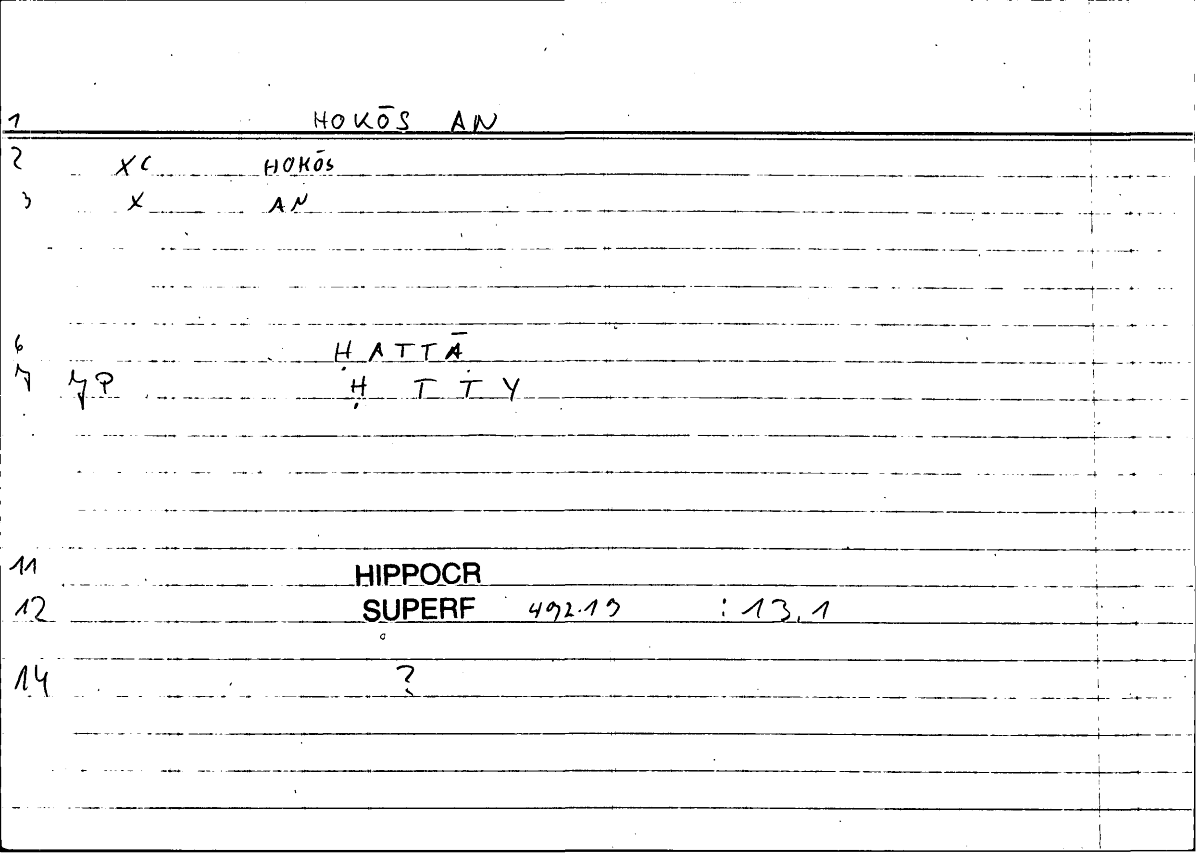 1 HOKŌS AN
2 XC HOKŌS
3 X AN
6 ḤATTĀ
7 P Ḥ T T Y
11 HIPPOCR
12 SUPERF 492.19 : 13,1
14 ?